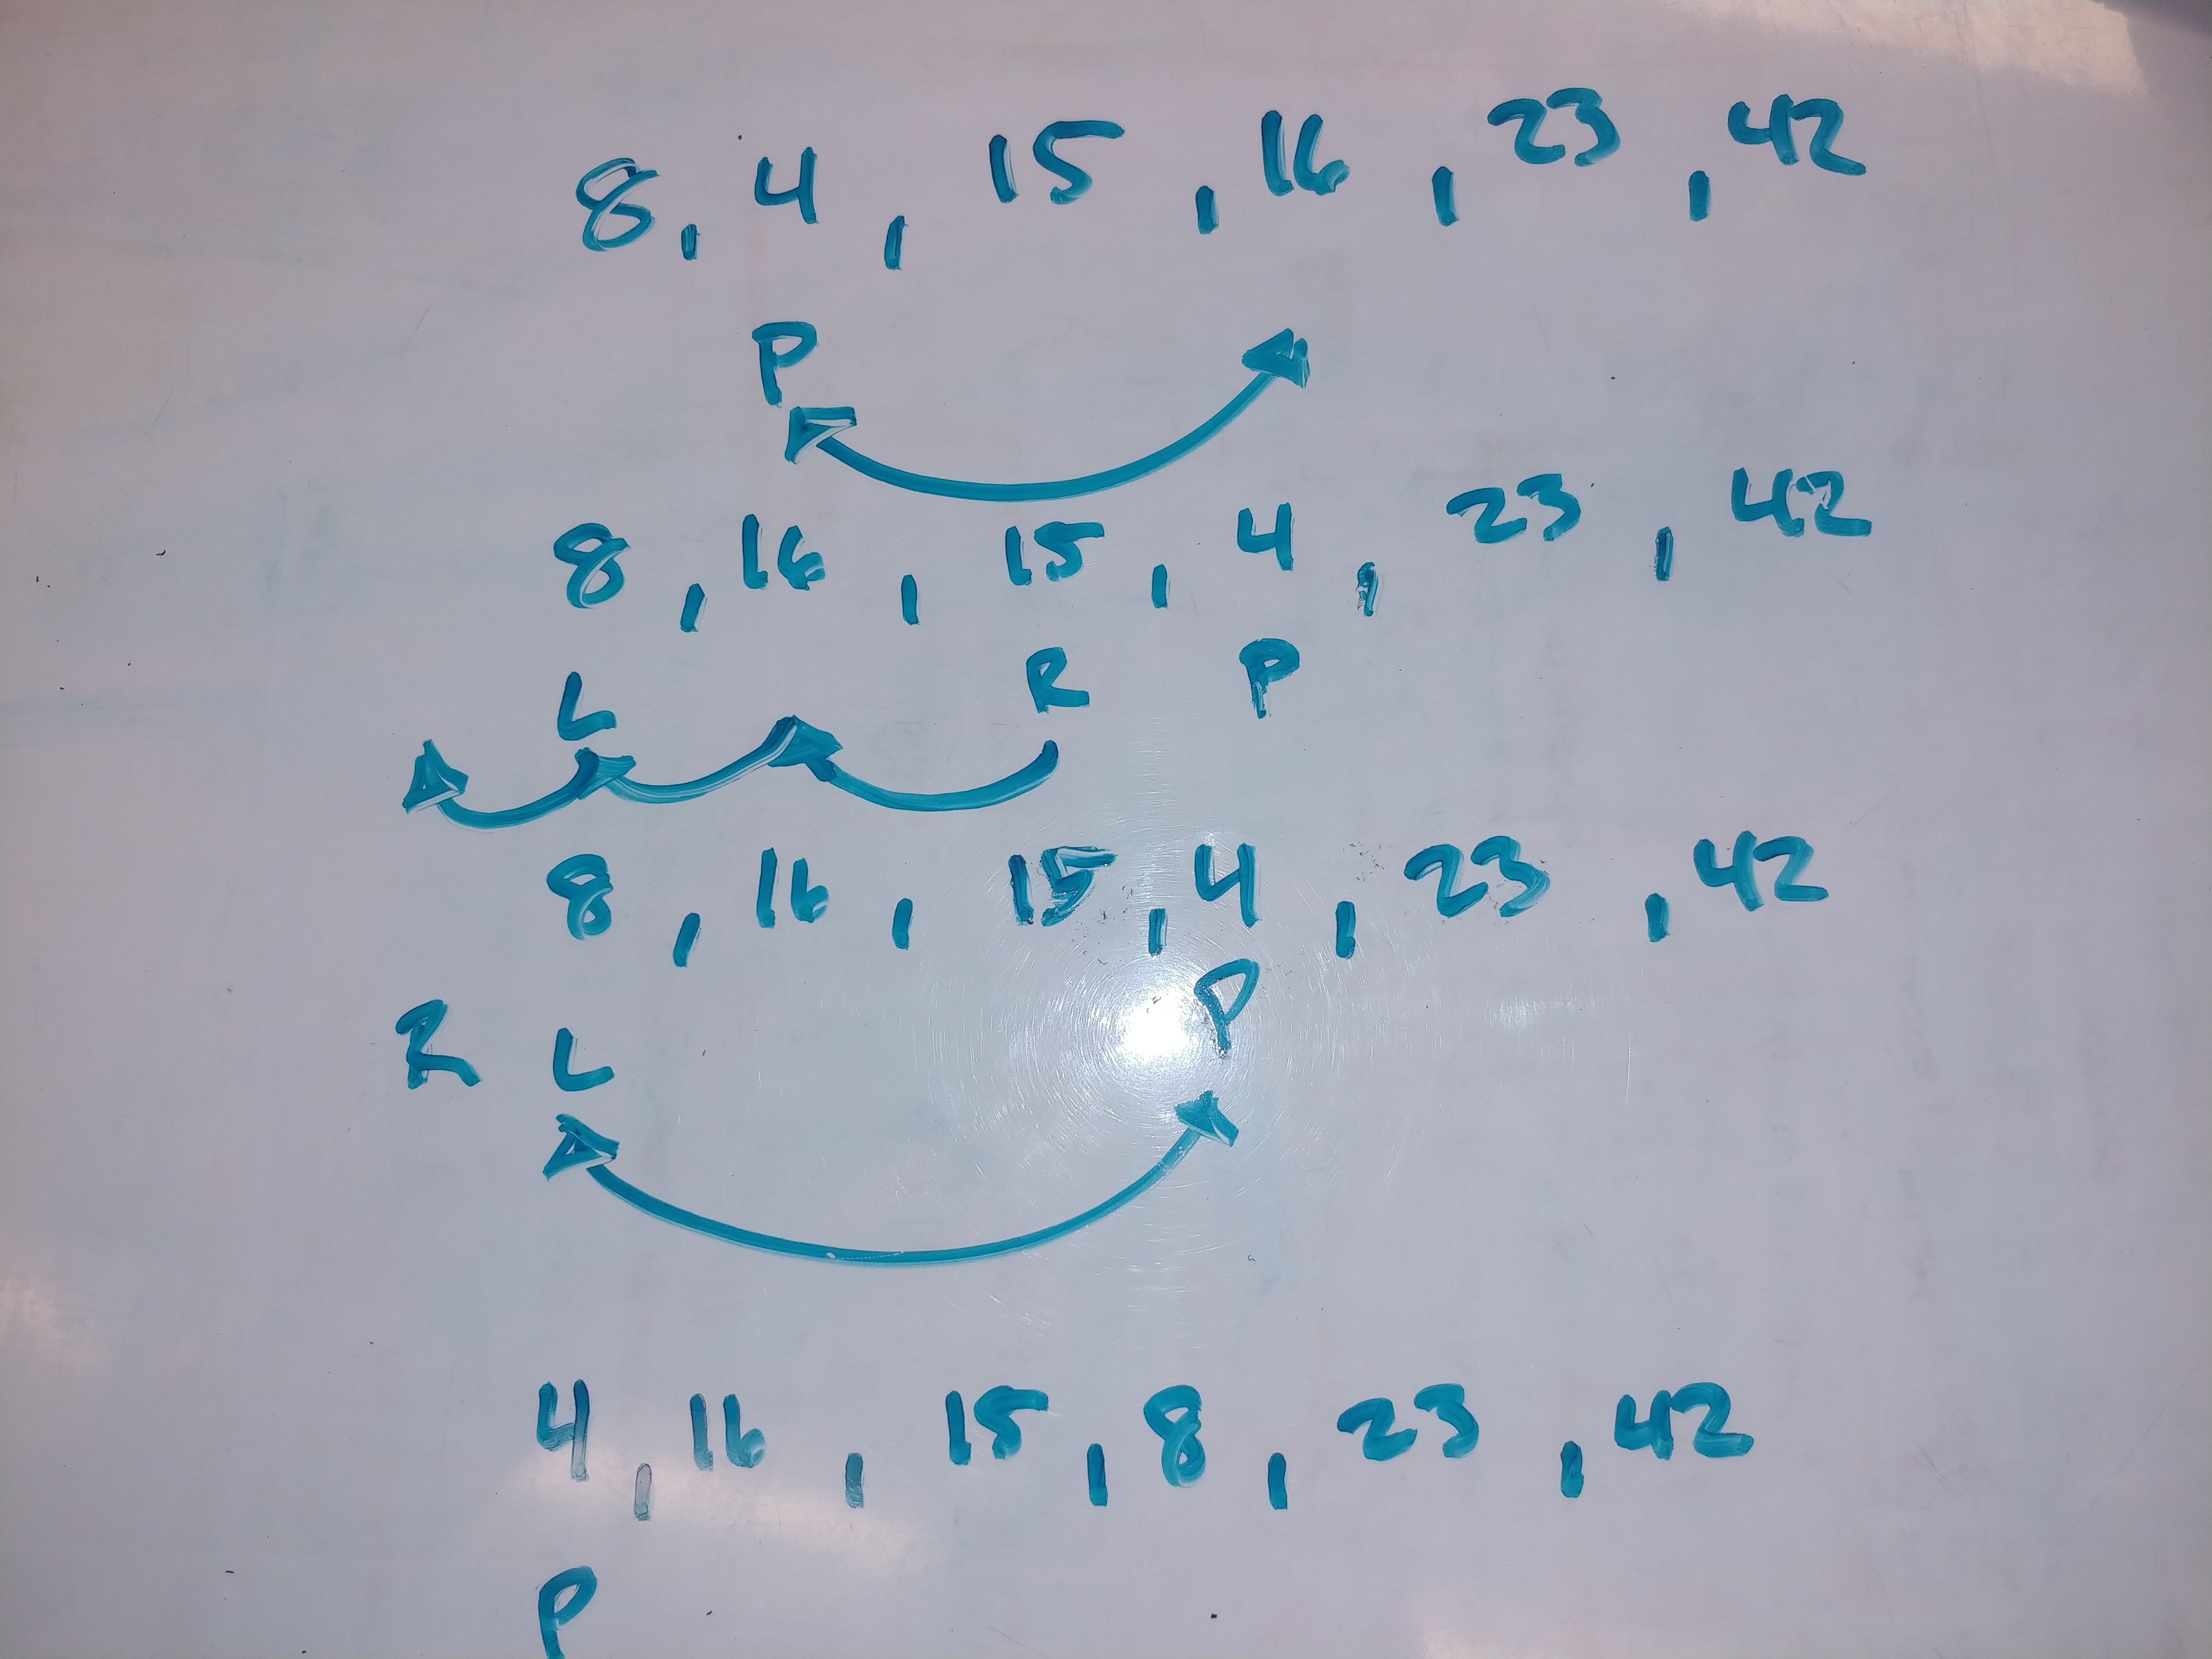 8, 4 - 15 - 16 - 23 - 42
P
8 - 16 - 15 - 4 - 23 - 42
L R P
8 - 16 - 15 - 4 - 23 - 42
R L P
4 - 16 - 15 - 8 - 23 - 42
P